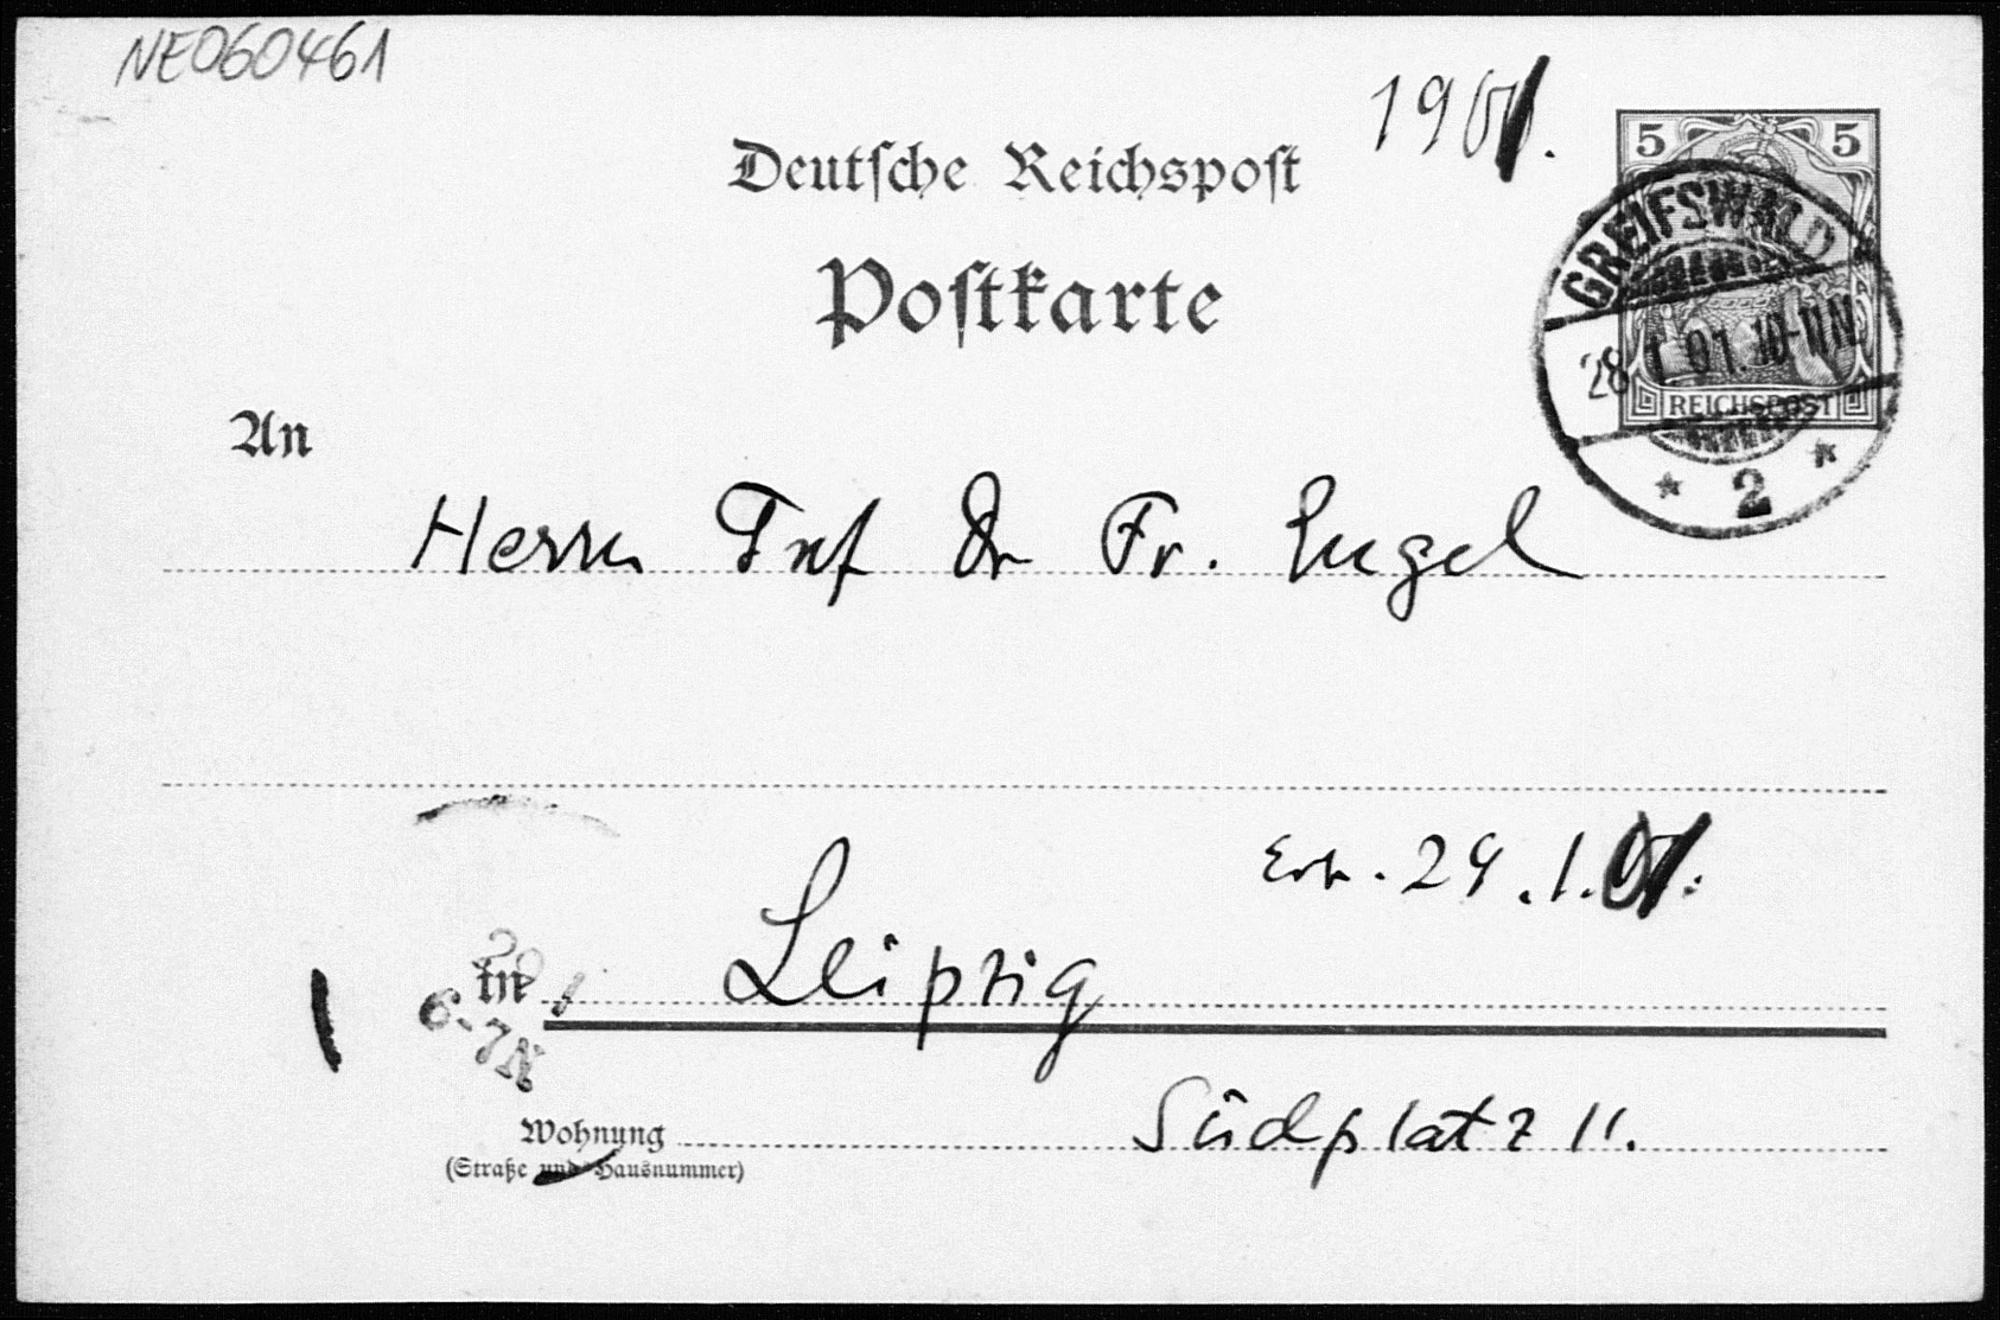 NE060461
1901.
Deutsche Reichspost
5 5
GREIFSWALD
Postkarte
28 1 01. 10-11N
REICHSPOST
* 2 *
An
Herrn Prof Dr Fr. Engel
Erh. 29.1.01.
in Leipzig
6-7N
Südplatz 11.
Wohnung
(Straße und Hausnummer)